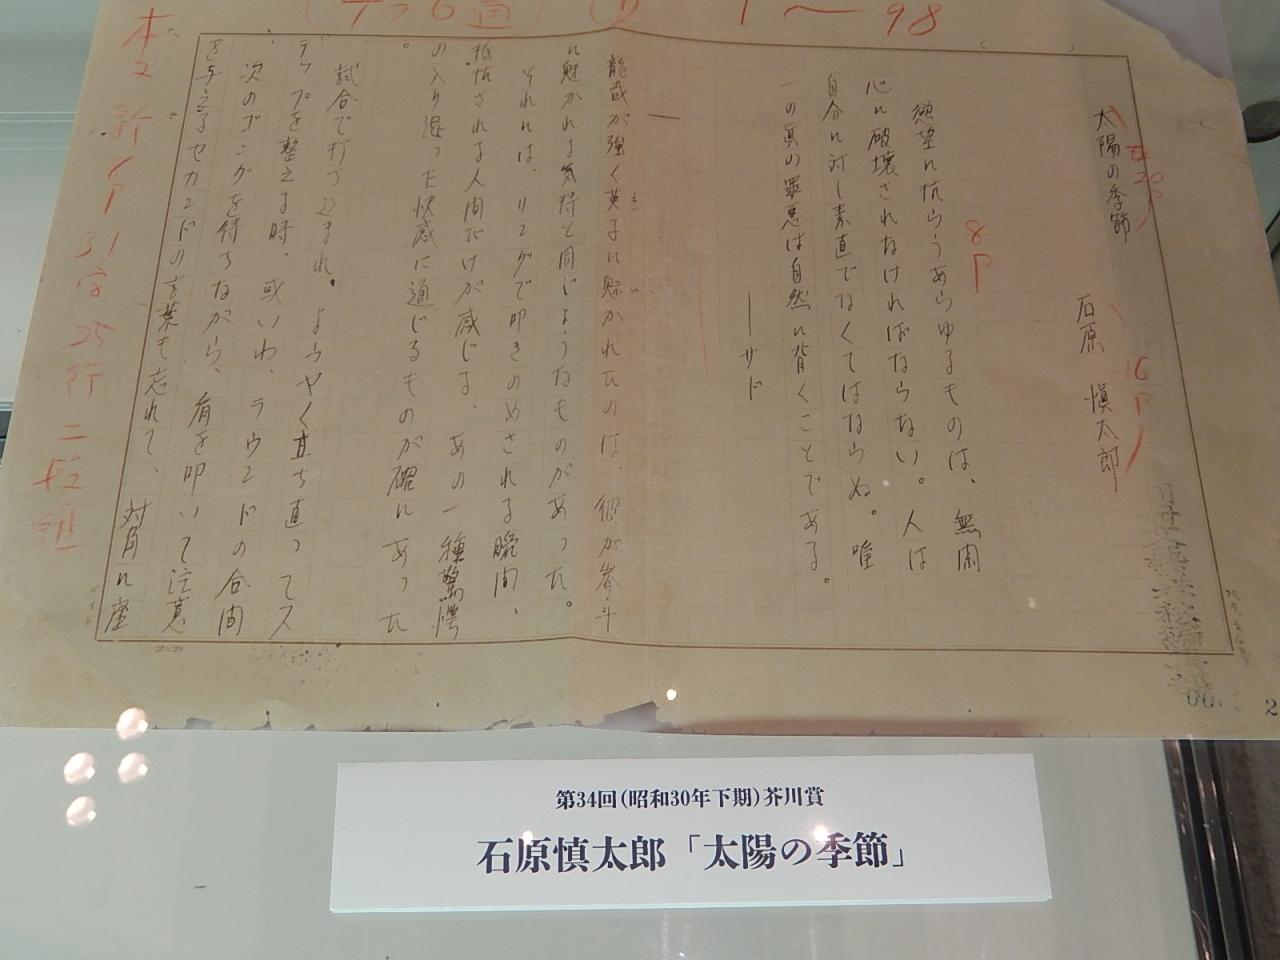 1〜98
太陽の季節
石原 慎太郎
8P
16P
慾望に抗らうあらゆるものは、無闲
心に破壊されなければならない。人は
自分に対し素直でなくてはならぬ。唯
一の真の罪悪は自然に背くことである。
――サド
一
龍哉が強く英子に魅かれたのは、彼が拳斗
に魅かれる気持と同じようなものがあった。
それには、リングで叩きのめされる瞬间、
抵抗される人间だけが感じる、あの一種驚愕
の入り混った快感に通じるものが確にあった
。
試合で打ち込まれ、ようやく立ち直ってス
テップを整える時、或いわ、ラウンドの合间
、次のゴングを待ちながら、肩を叩いて注意
を与えるセカンドの言葉も忘れて、対角に座
本文 新6P 31字25行 二段組
20×20
第34回(昭和30年下期)芥川賞
石原慎太郎「太陽の季節」